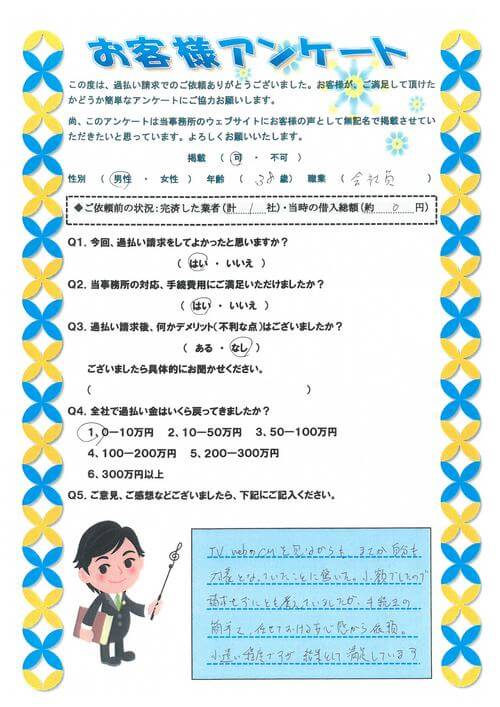 お客様アンケート
この度は、過払い請求でのご依頼ありがとうございました。お客様が、ご満足して頂けた
かどうか簡単なアンケートにご協力お願いします。
尚、このアンケートは当事務所のウェブサイトにお客様の声として無記名で掲載させてい
ただきたいと思っています。よろしくお願いいたします。
掲載 ( 可 ・ 不可 )
性別 ( 男性 ・ 女性 ) 年齢 ( 38 歳) 職業 ( 会社員 )
◆ご依頼前の状況:完済した業者(計 1 社)・当時の借入総額(約 0 円)
Q1. 今回、過払い請求をしてよかったと思いますか?
( はい ・ いいえ )
Q2. 当事務所の対応、手続費用にご満足いただけましたか?
( はい ・ いいえ )
Q3. 過払い請求後、何かデメリット(不利な点)はございましたか?
( ある ・ なし )
ございましたら具体的にお聞かせください。
( )
Q4. 全社で過払い金はいくら戻ってきましたか?
1、0-10万円 2、10-50万円 3、50-100万円
4、100-200万円 5、200-300万円
6、300万円以上
Q5. ご意見、ご感想などございましたら、下記にご記入ください。
TV、webのCMを見ながらも、まさか自分も
対象となっていたことに驚いた。小額でしたので
請求せずにとも考えていましたが、手続きの
簡単さ、任せておける安心感から依頼。
小遣い程度ですが結果として満足しています